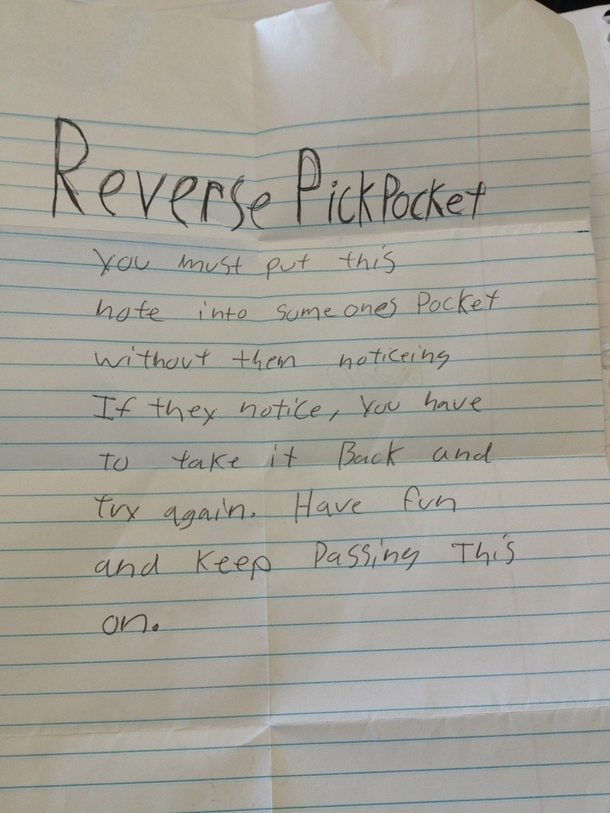 Reverse PickPocket
You must put this
note into someones Pocket
without them noticeing
If they notice, You have
to take it Back and
try again. Have fun
and Keep Passing This
on.